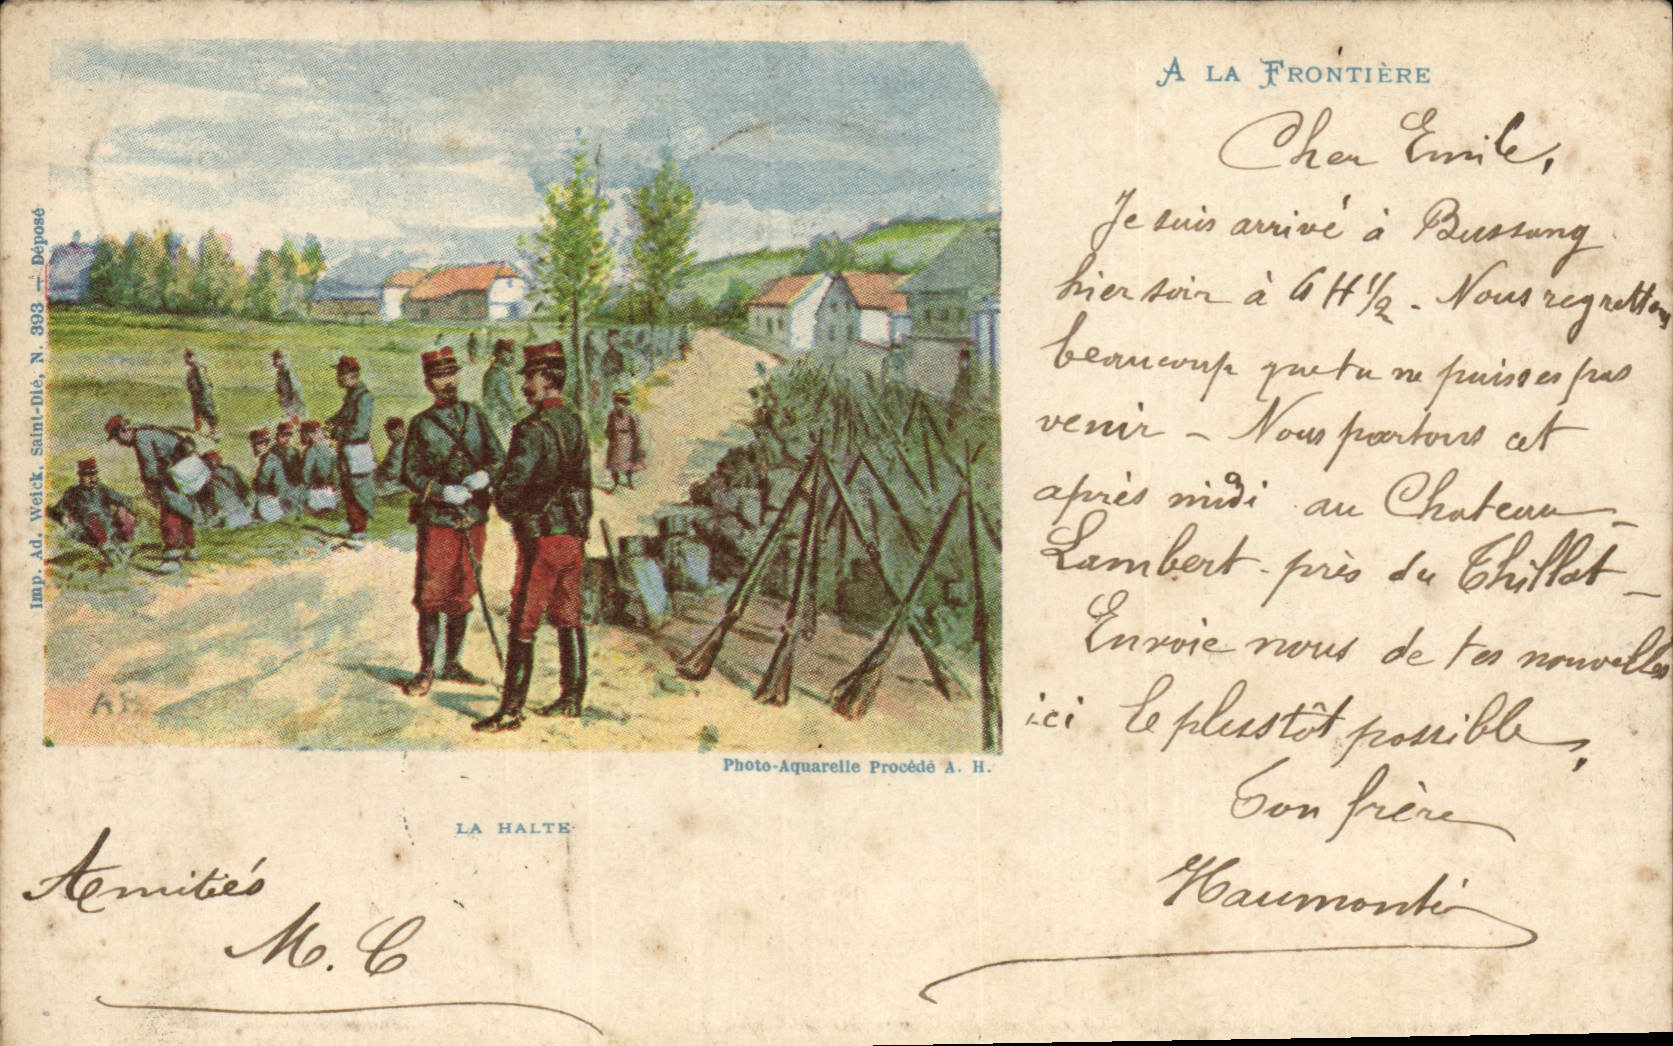 A LA FRONTIÈRE
Cher Emile,
Je suis arrivé à Bussang
hier soir à 6 H 1/2 - Nous regrettons
beaucoup que tu ne puisses pas
venir - Nous partons cet
après midi au Chateau
Lambert - près du Thillot -
Envoie nous de tes nouvelles
ici le plusstôt possible,
Ton frère
Imp. Ad. Weick, Saint-Dié, N. 393 — Déposé
A H
Photo-Aquarelle Procédé A. H.
LA HALTE
Amitiés
M. C